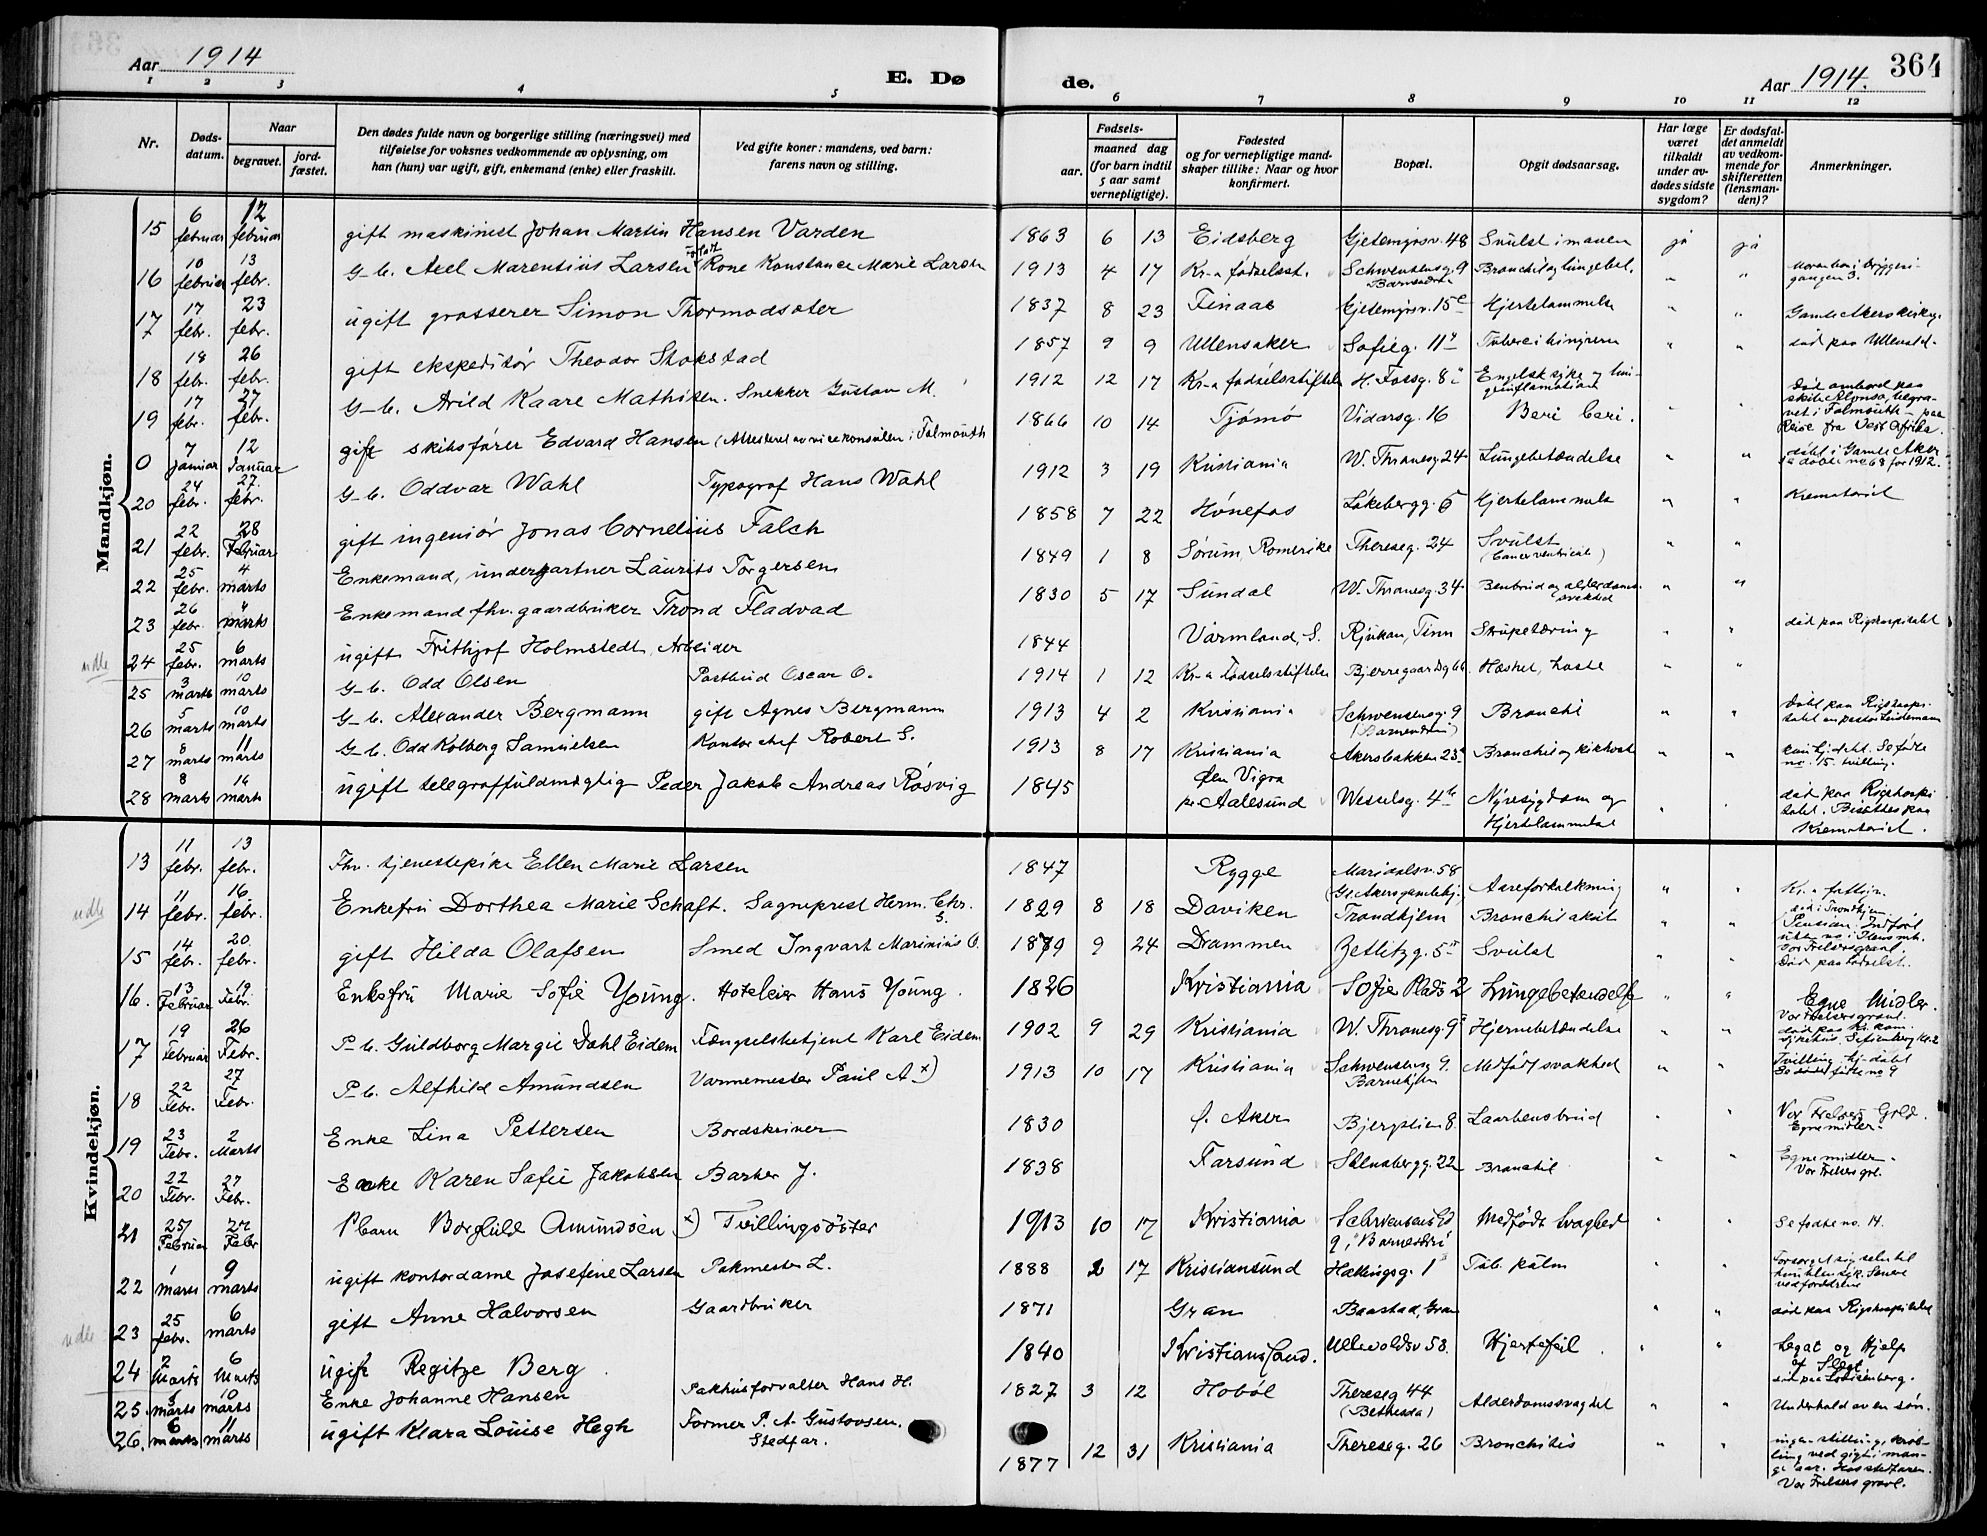 Aar 1914
E. Dø
de.
Aar 1914.
364
1 2 3 4 5
6 7 8 9 10 11 12
Nr.
Døds-
datum.
Naar
begravet.
jord-
fæstet.
Den dødes fulde navn og borgerlige stilling (næringsvei) med
tilføielse for voksnes vedkommende av oplysning, om
han (hun) var ugift, gift, enkemand (enke) eller fraskilt.
Ved gifte koner: mandens, ved barn:
farens navn og stilling.
Fødsels-
aar.
maaned dag
(for barn indtil
5 aar samt
vernepligtige).
Fødested
og for vernepligtige mand-
skaper tillike: Naar og hvor
konfirmert.
Bopæl.
Opgit dødsaarsag.
Har læge
været
tilkaldt
under av-
dødes sidste
sygdom?
Er dødsfal-
det anmeldt
av vedkom-
mende for
skifteretten
(lensman-
den)?
Anmerkninger.
Mandkjøn.
15 6 februar 12 februar gift maskinist Johan Martin Hansen Varden 1863 6 13 Eidsberg Gjetemyrsv. 48 Svulst i maven ja ja
16 10 februar 13 febr. G-b. Axel Marentius Larsen Kone Konstance Marie Larsen 1913 4 17 Kr-a fødselsst. Schwensensg. 9 " "
17 17 febr. 23 febr. ugift grosserer Simon Thormodsæter 1837 8 23 Finaas Gjetemyrsv. 15 Hjertelammelse " " Gamle Akers kirkeg.
18 18 febr. 26 febr. gift ekspeditør Theodor Stokstad 1857 9 9 Ullensaker Sofieg. 11 " " død paa Ullevål
19 17 febr. 27 febr. G-b. Arild Kaare Mathisen. Snekker Gustav M. 1912 12 17 Kr-a fødselsstiftelse H. Fossg. 8 Engelsk syke og lun-
geinflamation
0 7 januar 12 Januar gift skibsfører Edvard Hansen (Attesteret av vicekonsulen i Falmouth 1866 10 14 Tjømø Vidarsg. 16 Beri beri. Død ombord paa
skib Alonso, begra-
vet i Falmouth - paa
Reise fra Vest Afrika.
20 24 febr. 27. febr. G-b. Oddvar Wahl Typograf Hans Wahl 1912 3 19 Kristiania W. Thranesg. 24 Lungebetændelse " " døbt i Gamle Aker
se døbte no 68 for 1912.
21 22 febr. 28 Februar gift ingeniør Jonas Cornelius Falch 1858 7 22 Hønefos Løkebergg. 5 Hjertelammelse " " Krematoriet
22 25 febr. 4 marts Enkemand, undergartner Laurits Torgersen 1849 1 8 Sørum, Romerike Thereseg. 24 Svulst
(Cancer ventriculi) " "
23 26 febr. " marts Enkemand fhv. gaardbruker Trond Fladvad 1830 5 17 Sundal W. Thranesg. 34 Benbrud og alderdoms-
svakhed " "
udb
24 25 febr. 6 marts ugift Frithjof Holmstedt, Arbeider 1844 Värmland, S. Rjukan, Tinn Strupetæring " " død paa Rigshospitalet
25 3 marts 10 marts G-b. Odd Olsen Postbud Oscar O. 1914 1 12 Kr-a Fødselsstiftelse Bjerregaardsg 66 Hæshet, hoste " "
26 5 marts 10 marts G-b. Alexander Bergmann gift Agnes Bergmann 1913 4 2 Kristiania Schwensensg. 9 Bronchit " "
27 8 marts 11 marts G-b. Odd Kolberg Samuelsen Kontorchef Robert S. 1913 8 17 Kristiania Akersbakken 23 Bronchit og kikhoste " "
no. 15. tvilling.
28 8 marts 14 marts ugift telegraffuldmægtig Peder Jakob Andreas Røsvig 1845 Øen Vigra
pr. Aalesund Wesselsg. 4 Nyresygdom og
Hjertelammelse død paa Rigshospi-
talet. Bisættes paa
Krematoriet.
Kvindekjøn.
13 11 febr. 13 febr. Fhv. tjenestepike Ellen Marie Larsen 1847 Rygge Maridalsv. 58
(Gl. Akers gamlehj.) Aareforkalkning " "
udb
14 11 febr. 16 febr. Enkefru Dorthea Marie Schaft. Sogneprest Herm. Chr. S. 1829 8 18 Daviken Trondhjem Bronchit akut " " død i Trondhjem.
Vor Frelsers gravl.
15 14 febr. 20. febr. gift Hilda Olafsen Smed Ingvart Marinius O. 1879 9 24 Drammen Zetlitzg. 5 Svulst Død paa Fødselst.
16. 13 Februar 19 Febr. Enkefru Marie Sofie Young. Hoteleier Hans Young. 1826 Kristiania Sofie Plads 2 Lungebetændelse " " Egne Midler.
Vor Frelsers gravl.
17 19 Februar 26 Febr. P-b. Guldborg Margit Dahl Eidem Fængselsbetjent Karl Eidem 1902 9 29 Kristiania W. Thranesg. 9 Hjernebetændelse " "
18 22 Febr. 27 Febr. P-b. Alfhild Amundsen Varmemester Paul A x) 1913 10 17 Kristiania Schwensensg. 9.
Barnehjem Medfødt svakhed " " Tvilling hj-døbt
19 23 Febr. 2 Marts Enke Lina Pettersen Bordskriver 1830 f. Aker Bjergstien 8. Laarbensbrud " " Vor Frelsers Grl.
Egne midler.
20 22 Febr. 27 Febr. Enke Karen Sofie Jakobsen Barber J. 1838 Farsund Stensbergg. 22 Bronchit " " Egne midler.
Vor Frelsers grl.
21 25 Februar 27 Febr P barn Borghild Amundsen x) Tvillingsøster 1913 10 17 Kristiania Schwensens Gd
9, "Barnehj." Medfødt Svaghed " " Se fødte no. 14.
22 1 mars 9 marts ugift kontordame Josefine Larsen Pakmester L. 1888 2 17 Kristiansund Hallingsg. 1 Tub. pulm " "
udb
23 25 febr. 6 marts gift Anne Halvorsen Gaardbruker 1871 Gran Baastad, Gran " " død paa Rigshospitalet
24 2 Marts 6 Marts ugift Regitze Berg 1840 Kristianssand. Ullevoldsv 53. Hjertefeil " " Legat og Hjelp
af Slægt
25. 5 marts 10 marts Enke Johanne Hansen Pakhusforvalter Hans H. 1827 3 12 Hobøl Thereseg 44
(Bethesda) Alderdomssvaghet " " Underhold av en søn.
26. 6 marts 11 marts ugift Klara Louise Hegh Former P. A. Gustavsen.
Stedfar. 1877 12 31 Kristiania Thereseg. 26 Bronchitis " " ingen stilling, 
Hos stedfaren.
Vor Frelsers gravl.